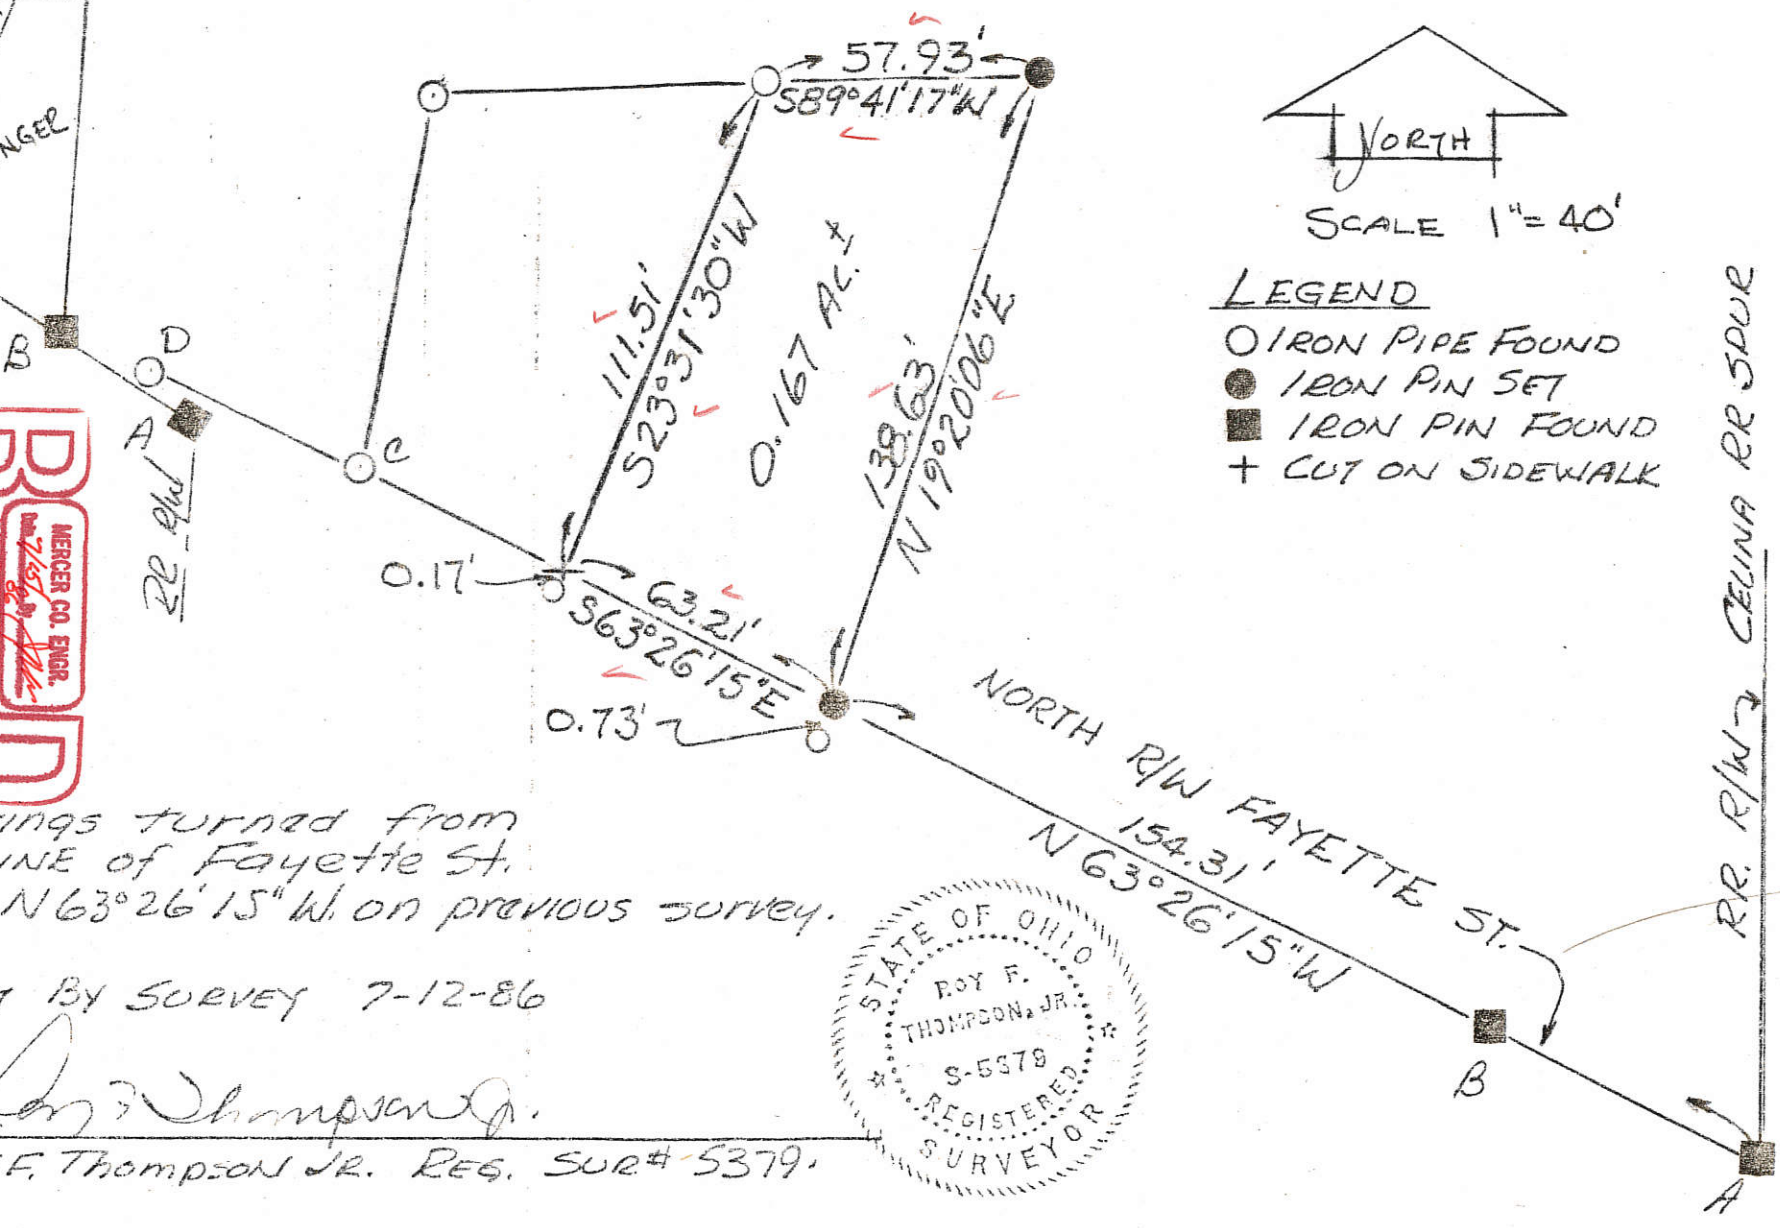 57.93'
S89°41'17"W
NGER
NORTH
SCALE 1"=40'
LEGEND
IRON PIPE FOUND
IRON PIN SET
IRON PIN FOUND
+ CUT ON SIDEWALK
111.51'
S23°31'30"W
0.167 AC.±
138.63'
N 19°20'06"E
B
D
A
C
RR R/W
MERCER CO. ENGR.
0.17'
63.21'
S63°26'15"E
0.73'
NORTH R/W FAYETTE ST.
154.31'
N 63°26'15"W
RR. R/W
CELINA RR SPUR
B
A
ings turned from
INE of Fayette St.
N63°26'15"W. on previous survey.
By SURVEY 7-12-86
Thompson Jr.
F. Thompson JR. REG. SUR# 5379.
STATE OF OHIO
ROY F.
THOMPSON, JR.
S-5379
REGISTERED
SURVEYOR